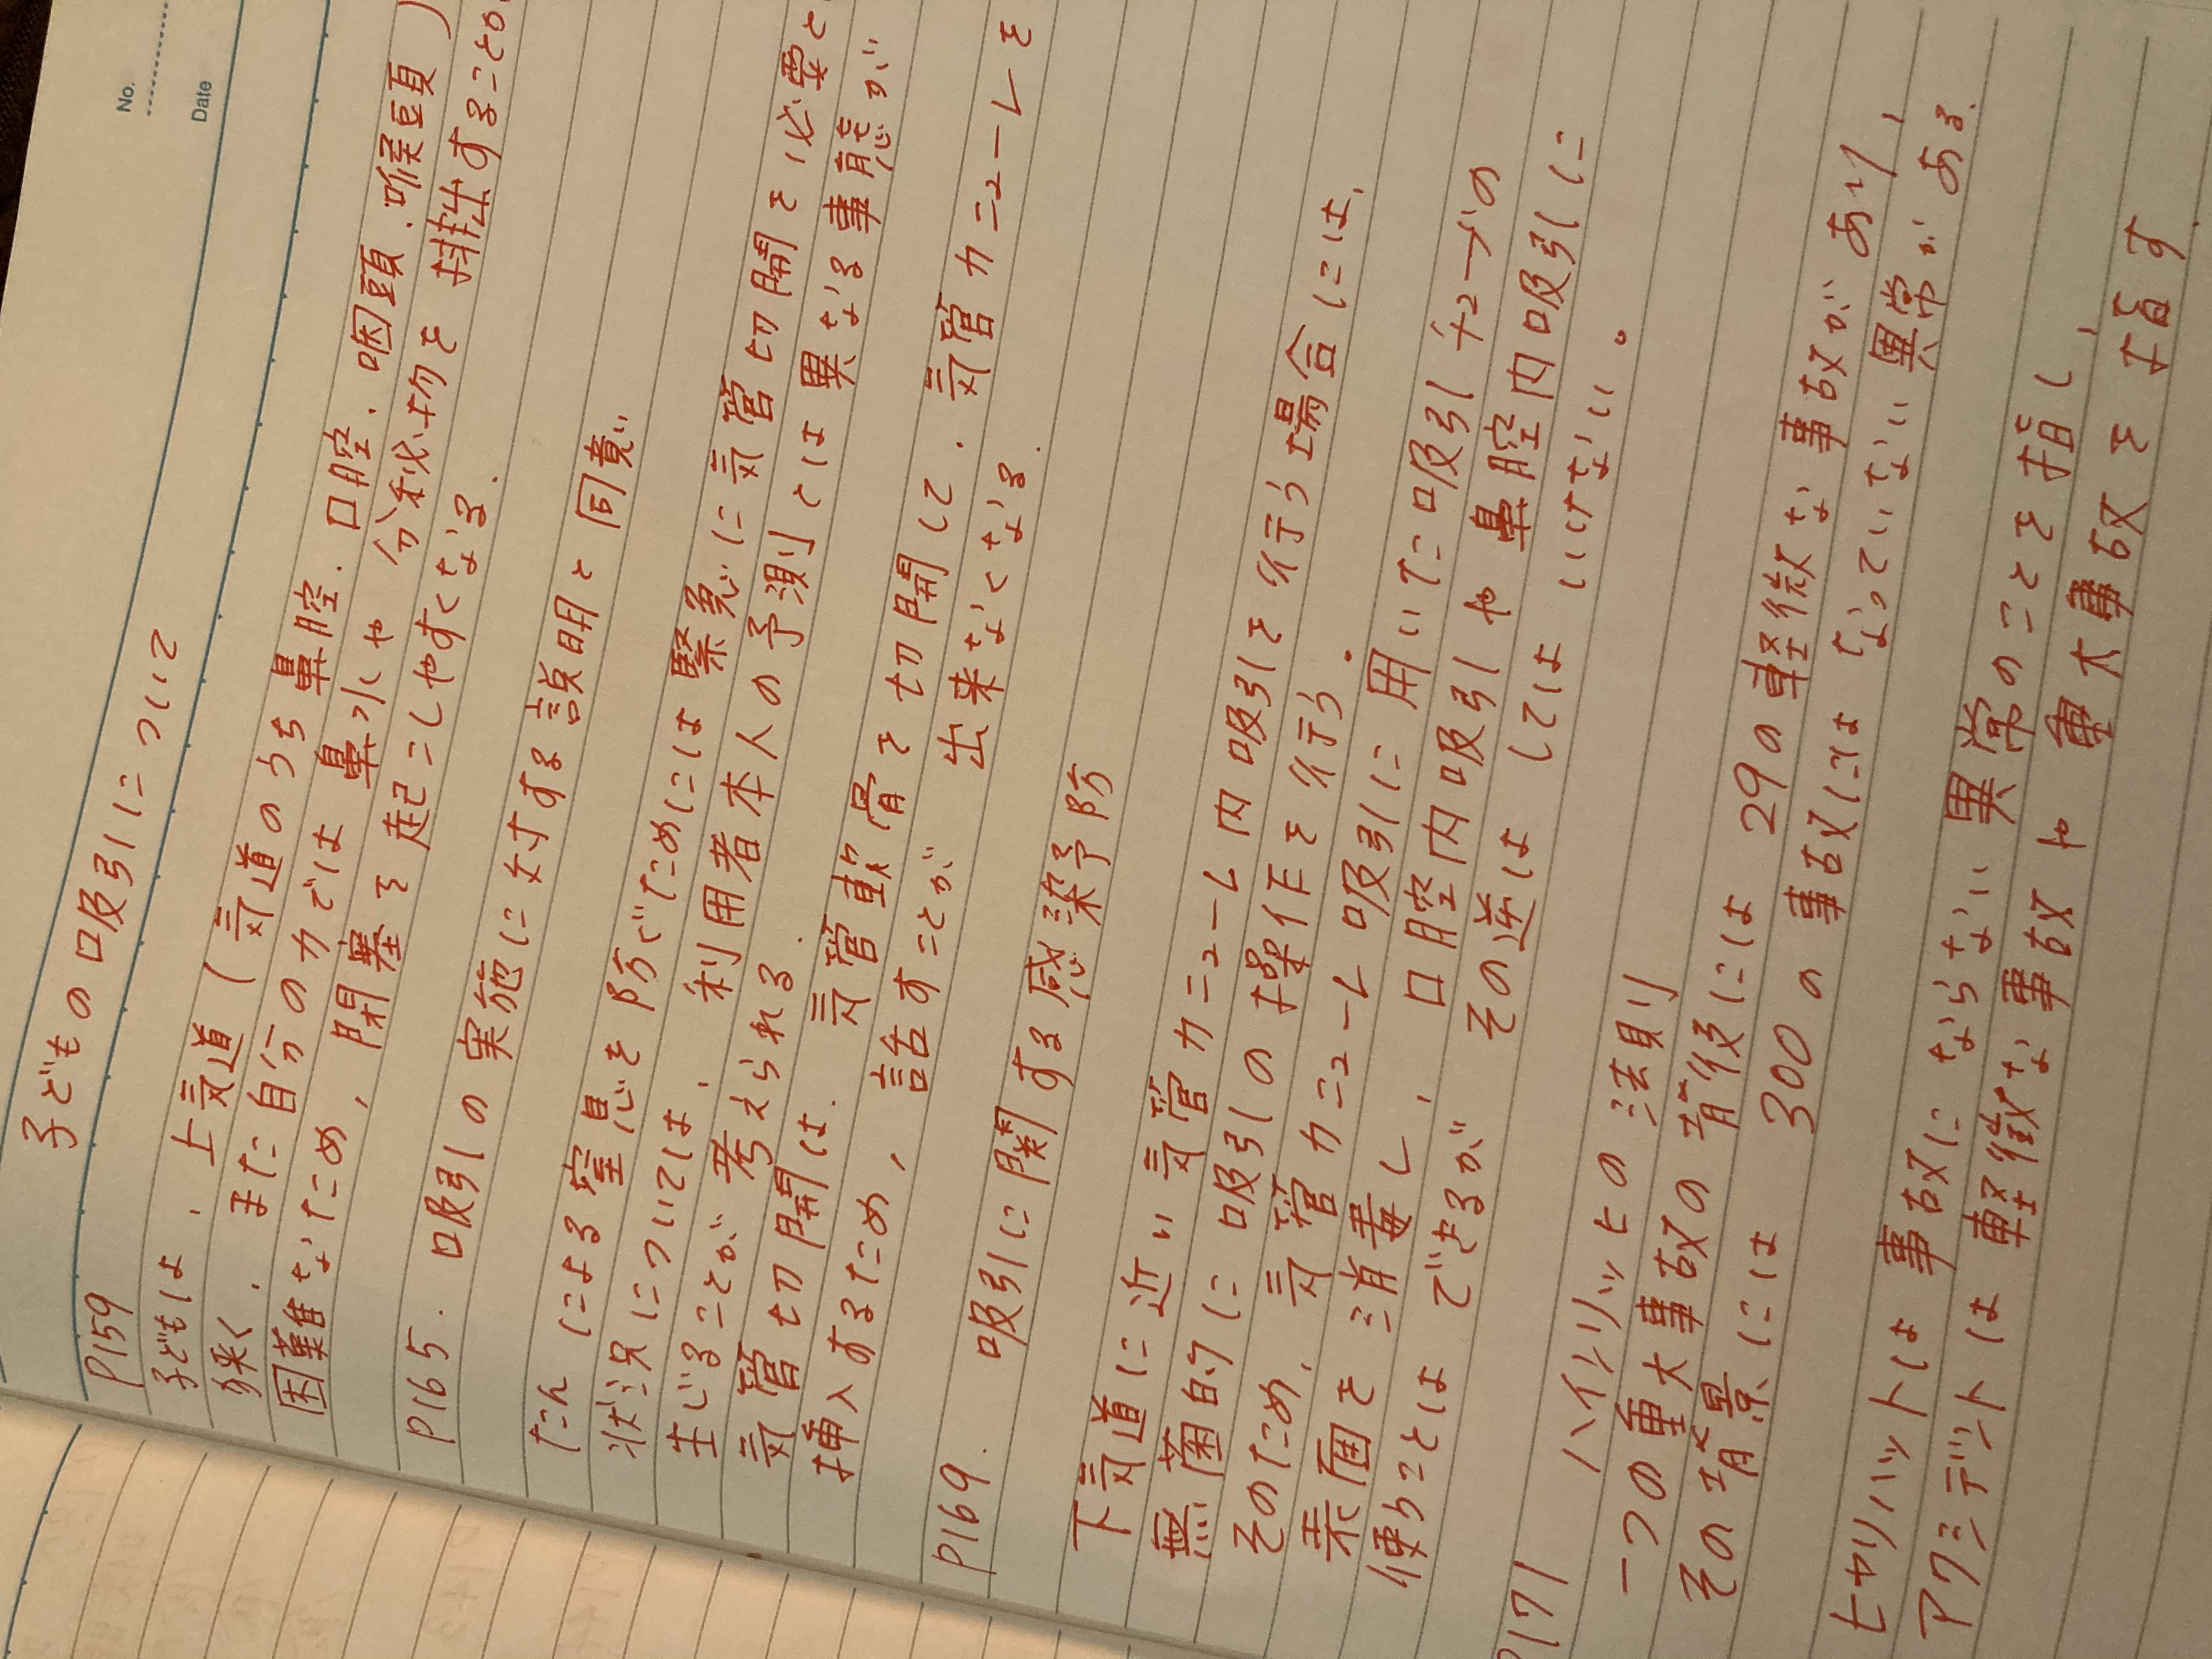 No.
Date
子どもの吸引について
P159
子どもは、上気道(気道のうち鼻腔.口腔.咽頭.喉頭)
狭く.また自分の力では鼻水や分泌物を排出すること
困難なため、閉塞を起こしやすくなる.
P165. 吸引の実施に対する説明と同意
たんによる窒息を防ぐためには緊急に気管切開を必要と
状況については、利用者本人の予測とは異なる事態が
生じることが考えられる.
気管切開は.気管軟骨を切開して.気管カニューレを
挿入するため、話すことが出来なくなる.
P169. 吸引に関する感染予防
下気道に近い気管カニューレ内吸引を行う場合には、
無菌的に吸引の操作を行う.
そのため.気管カニューレ吸引に用いた吸引チューブの
表面を消毒し、口腔内吸引や鼻腔内吸引に
使うことはできるがその逆はしてはいけない。
P171 ハインリッヒの法則
一つの重大事故の背後には29の軽微な事故があり、
その背景には300の事故にはなっていない異常がある.
ヒヤリハットは事故にならない異常のことを指し、
アクシデントは軽微な事故や重大事故を指す